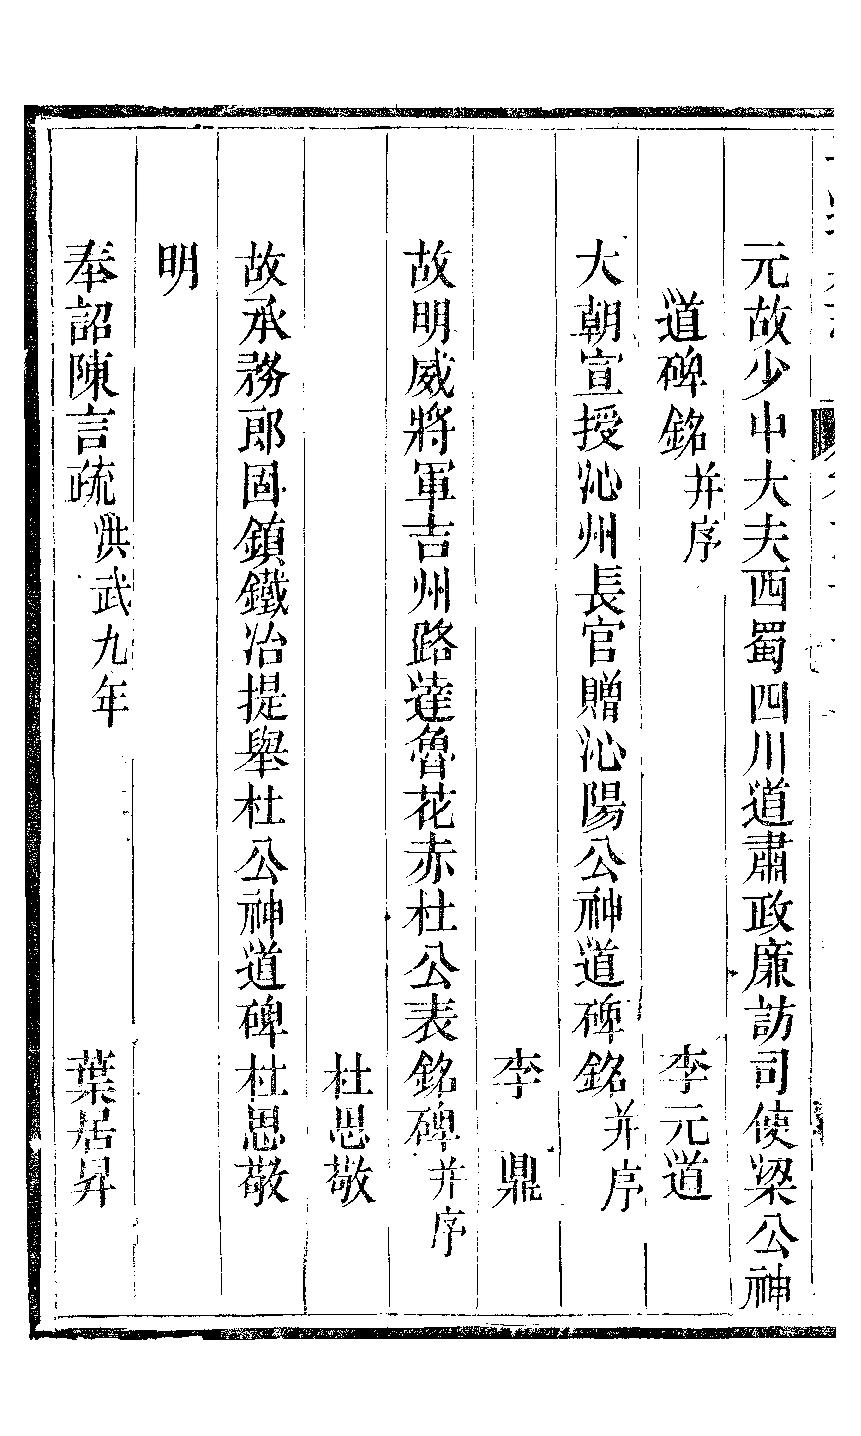 元故少中大夫西蜀四川道肅政廉訪司使梁公神
道碑銘并序 李元道
大朝宣授沁州長官贈沁陽公神道碑銘并序
李鼎
故明威將軍吉州路達魯花赤杜公表銘碑并序
杜思敬
故承務郎固鎮鐵冶提舉杜公神道碑杜思敬
明
奉詔陳言疏洪武九年 葉居昇